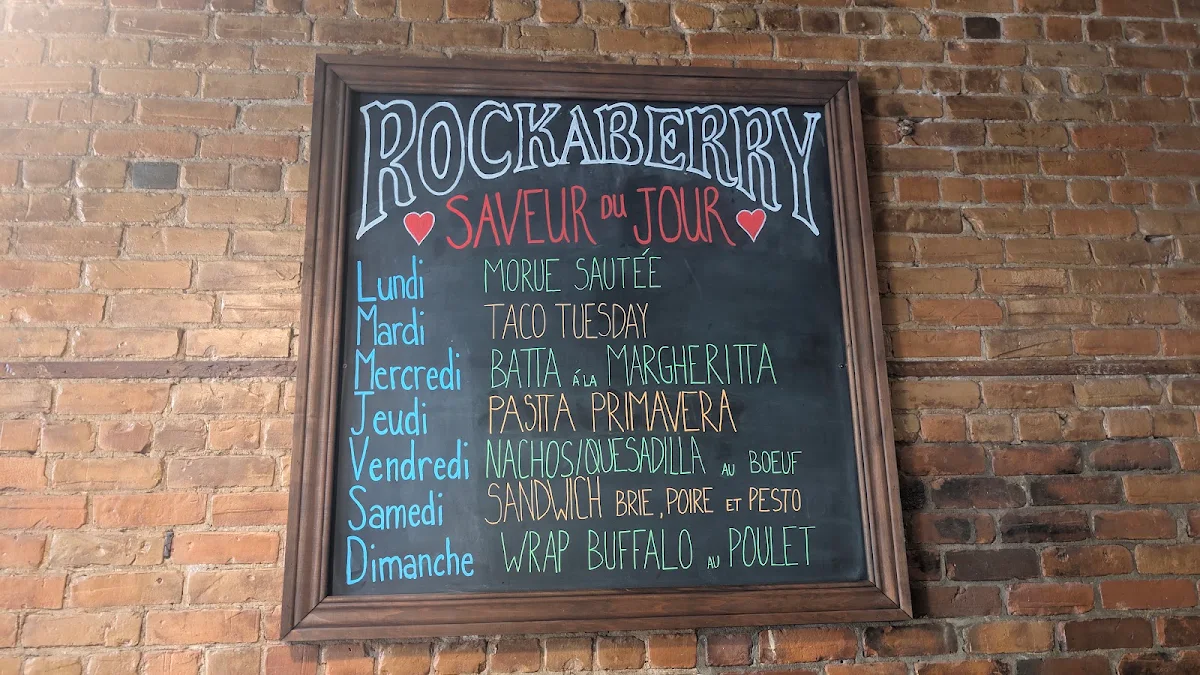 ROCKABERRY
SAVEUR DU JOUR
Lundi MORUE SAUTÉE
Mardi TACO TUESDAY
Mercredi BATTA á LA MARGHERITTA
Jeudi PASTTA PRIMAVERA
Vendredi NACHOS/QUESADILLA AU BOEUF
Samedi SANDWICH BRIE, POIRE ET PESTO
Dimanche WRAP BUFFALO AU POULET